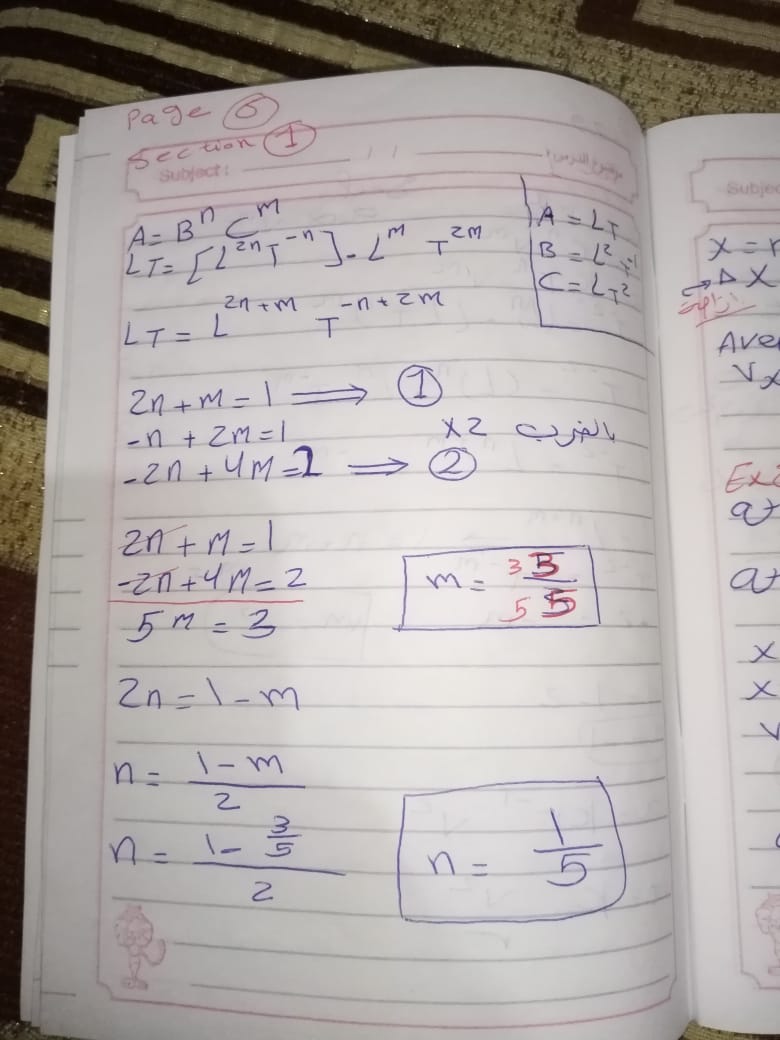 Page 6
Section 1
Subject: موضوع الدرس:
A = Bⁿ Cᵐ
LT = [L²ⁿT⁻ⁿ] - Lᵐ T²ᵐ
A = LT
B = L²T⁻¹
C = LT²
LT = L²ⁿ⁺ᵐ T⁻ⁿ⁺²ᵐ
2n + m = 1 ⟹ ①
-n + 2m = 1 x2 بالضرب
-2n + 4m = 2 ⟹ ②
2n + m = 1
-2n + 4m = 2
5m = 3
m = 3/5
2n = 1 - m
n = (1 - m)/2
n = (1 - 3/5)/2
n = 1/5
Subjec
Ave
Ex2
at
at
x
x